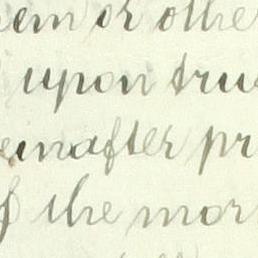 em or othe
upon trus
einafter pr
f the mor